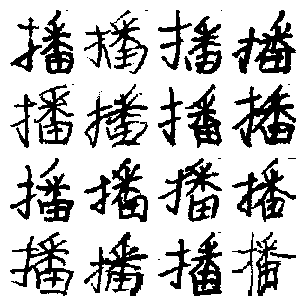 播播播播
播播播播
播播播播
播播播播